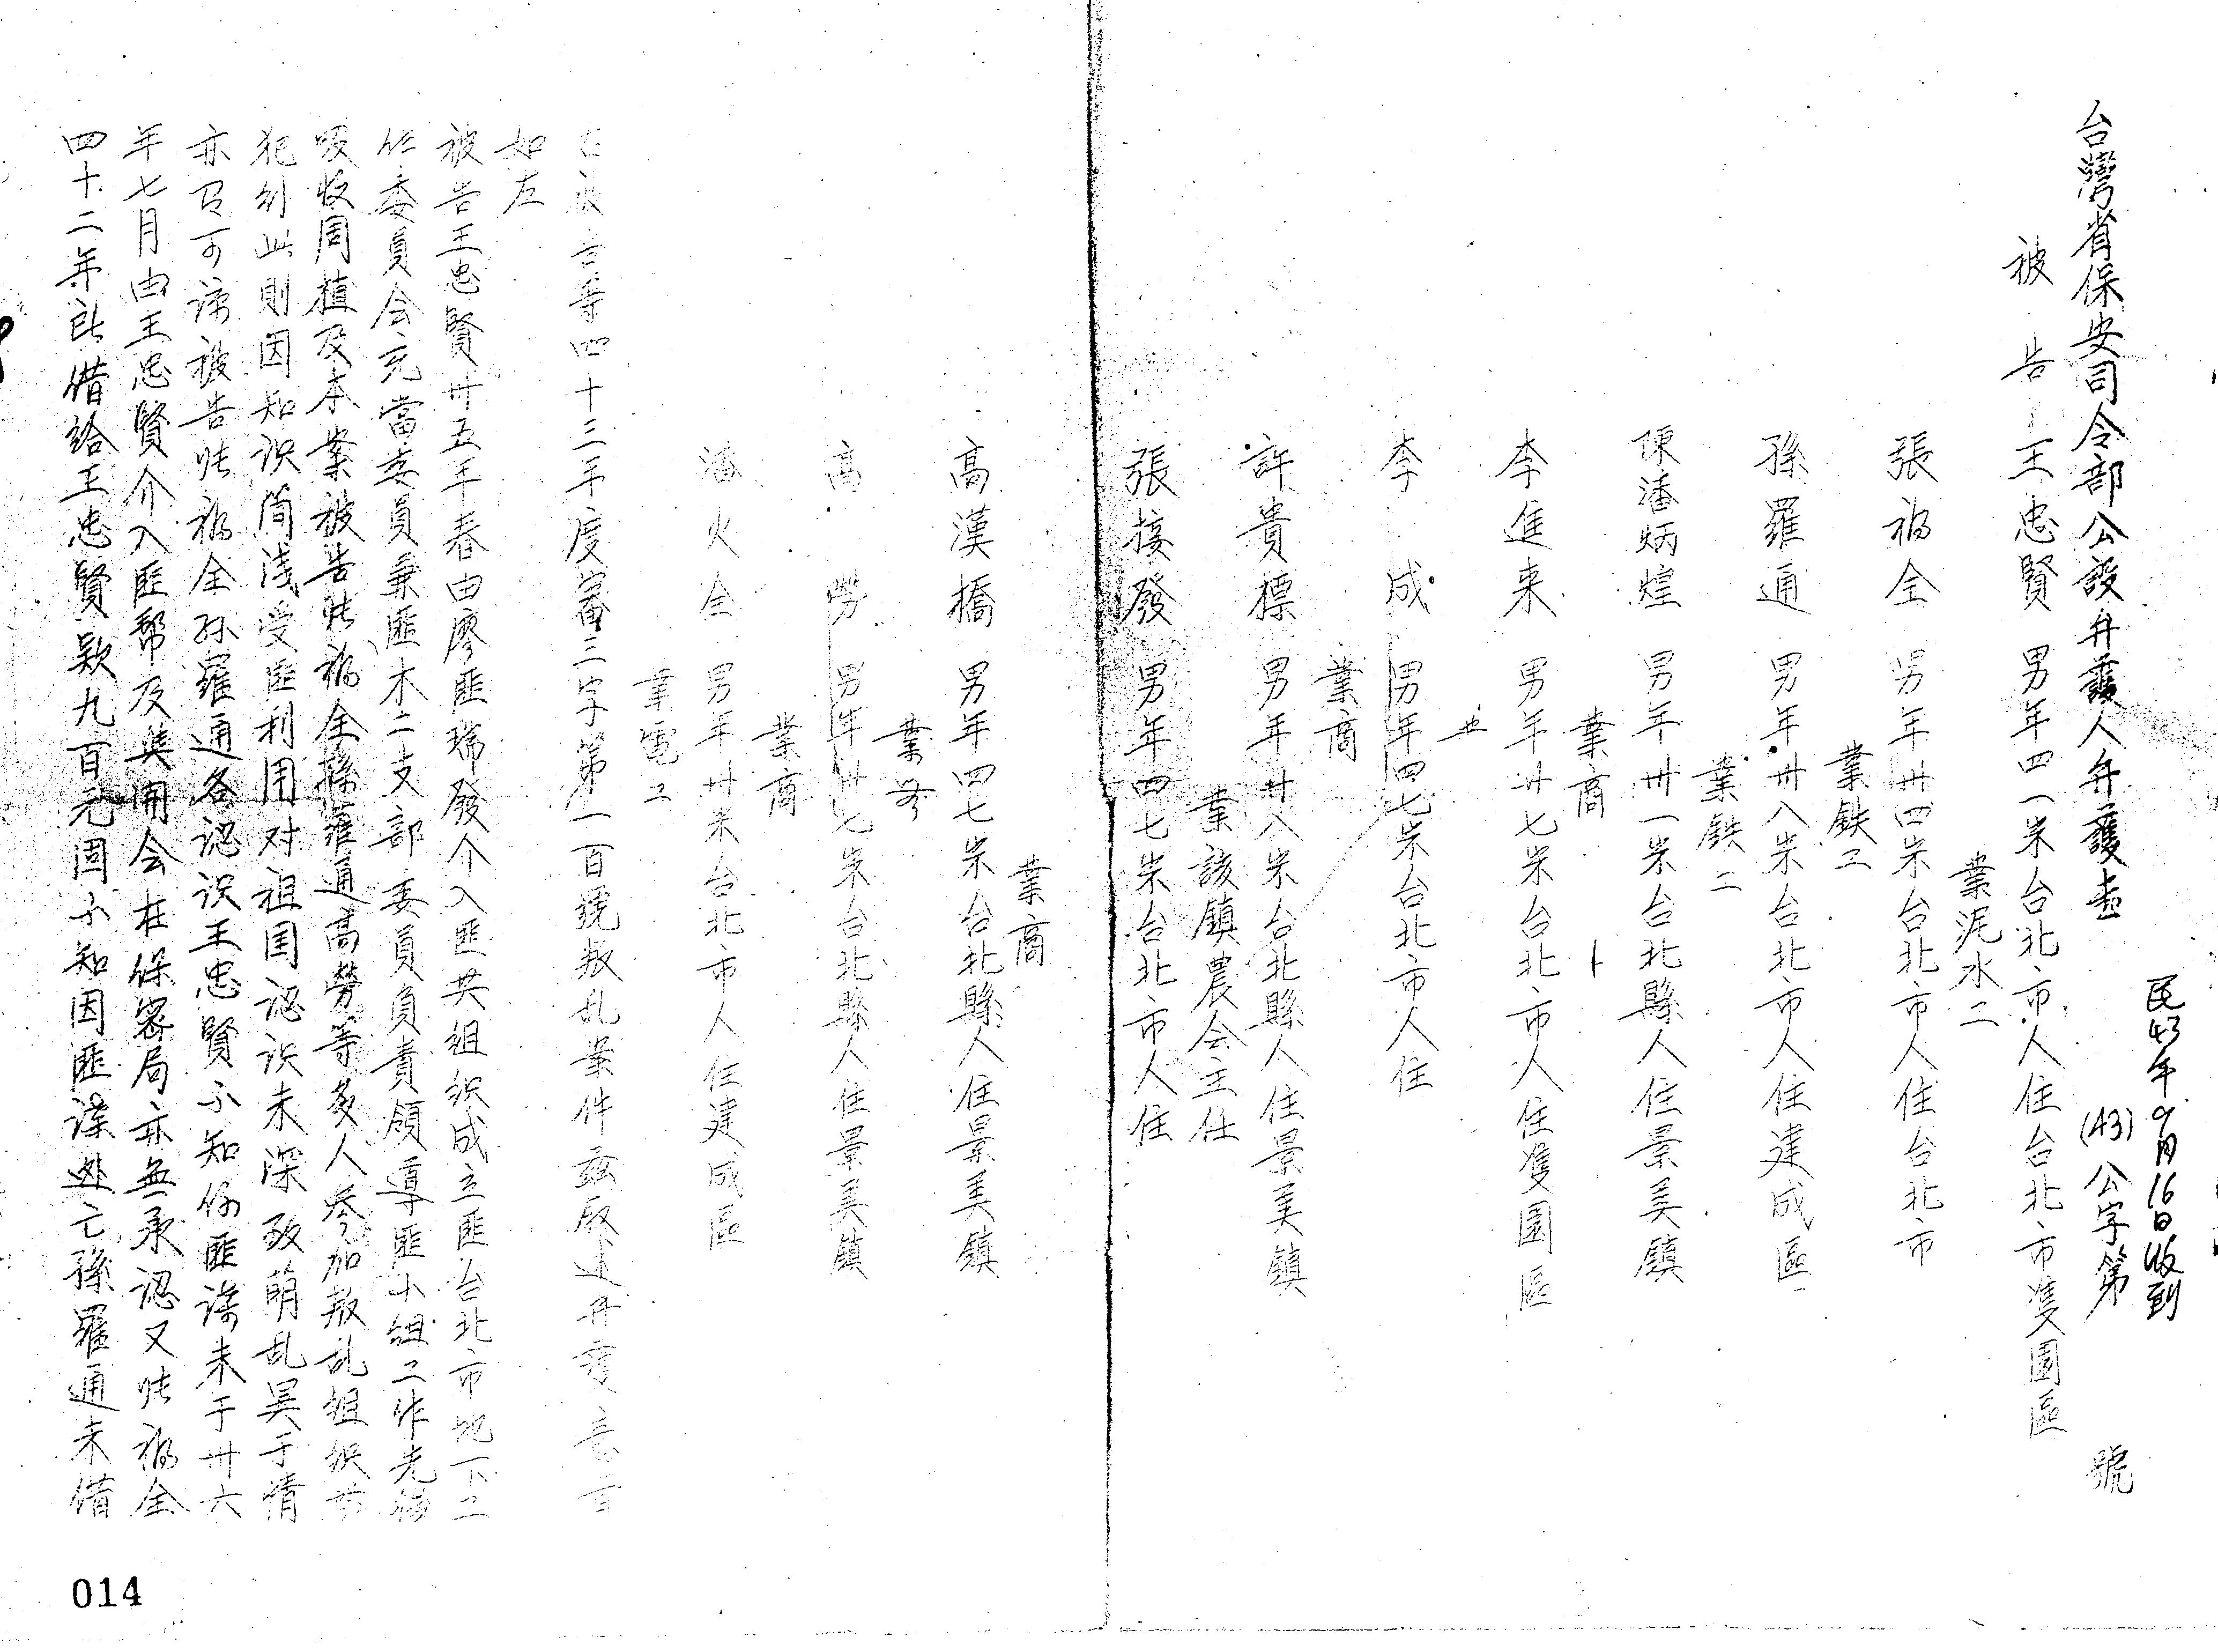 民43年9月16日收到
台灣省保安司令部公設弁護人弁護書 (43)公字第 號
被告 王忠賢 男年四一岁台北市人住台北市双園區
業泥水工
張福全 男年卅四岁台北市人住台北市
業鉄工
孫羅通 男年卅八岁台北市人住建成區
業鉄工
陳潘炳煌 男年卅一岁台北縣人住景美鎮
業商
李進来 男年卅七岁台北市人住双園區
李成 男年四七岁台北市人住
業商
許貴標 男年卅八岁台北縣人住景美鎮
業該鎮農会主任
張接發 男年四七岁台北市人住
業商
高漢橋 男年四七岁台北縣人住景美鎮
業
高勞 男年卅七岁台北縣人住景美鎮
業商
潘火全 男年卅岁台北市人住建成區
業電工
右被告等四十三年度審三字第一百號叛乱案件茲取述弁護意旨
如左
被告王忠賢卅五年春由廖匪瑞發介入匪共組织成立匪台北市地下工
作委員会充當委員兼匪木工支部委員負責領導匪小組工作先後
吸收周植及本案被告張福全孫羅通高勞等多人參加叛乱組织其
犯列此則因知识简淺受匪利用对祖国認识未深致萌乱異于情
亦有可諒被告张福全孙羅通各認识王忠賢不知係匪諜未于卅六
年七月由王忠賢介入匪幫及其開会在保密局亦無承認又张福全
四十二年話借給王忠賢欵九百元固不知因匪諜逃亡孫羅通未借
014